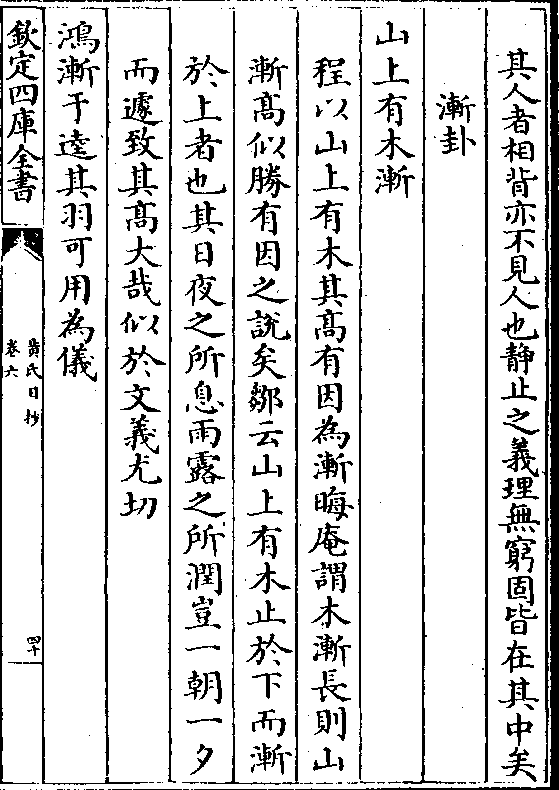 其人者相背亦不見人也静止之義理無窮固皆在其中矣
漸卦
山上有木漸
程以山上有木其髙有因為漸晦庵謂木漸長則山
漸髙似勝有因之說矣鄒云山上有木止於下而漸
於上者也其日夜之所息雨露之所潤豈一朝一夕
而遽致其髙大哉似於文義尤切
鴻漸于逵其羽可用為儀
欽定四庫全書
黄氏日抄
卷六
四十